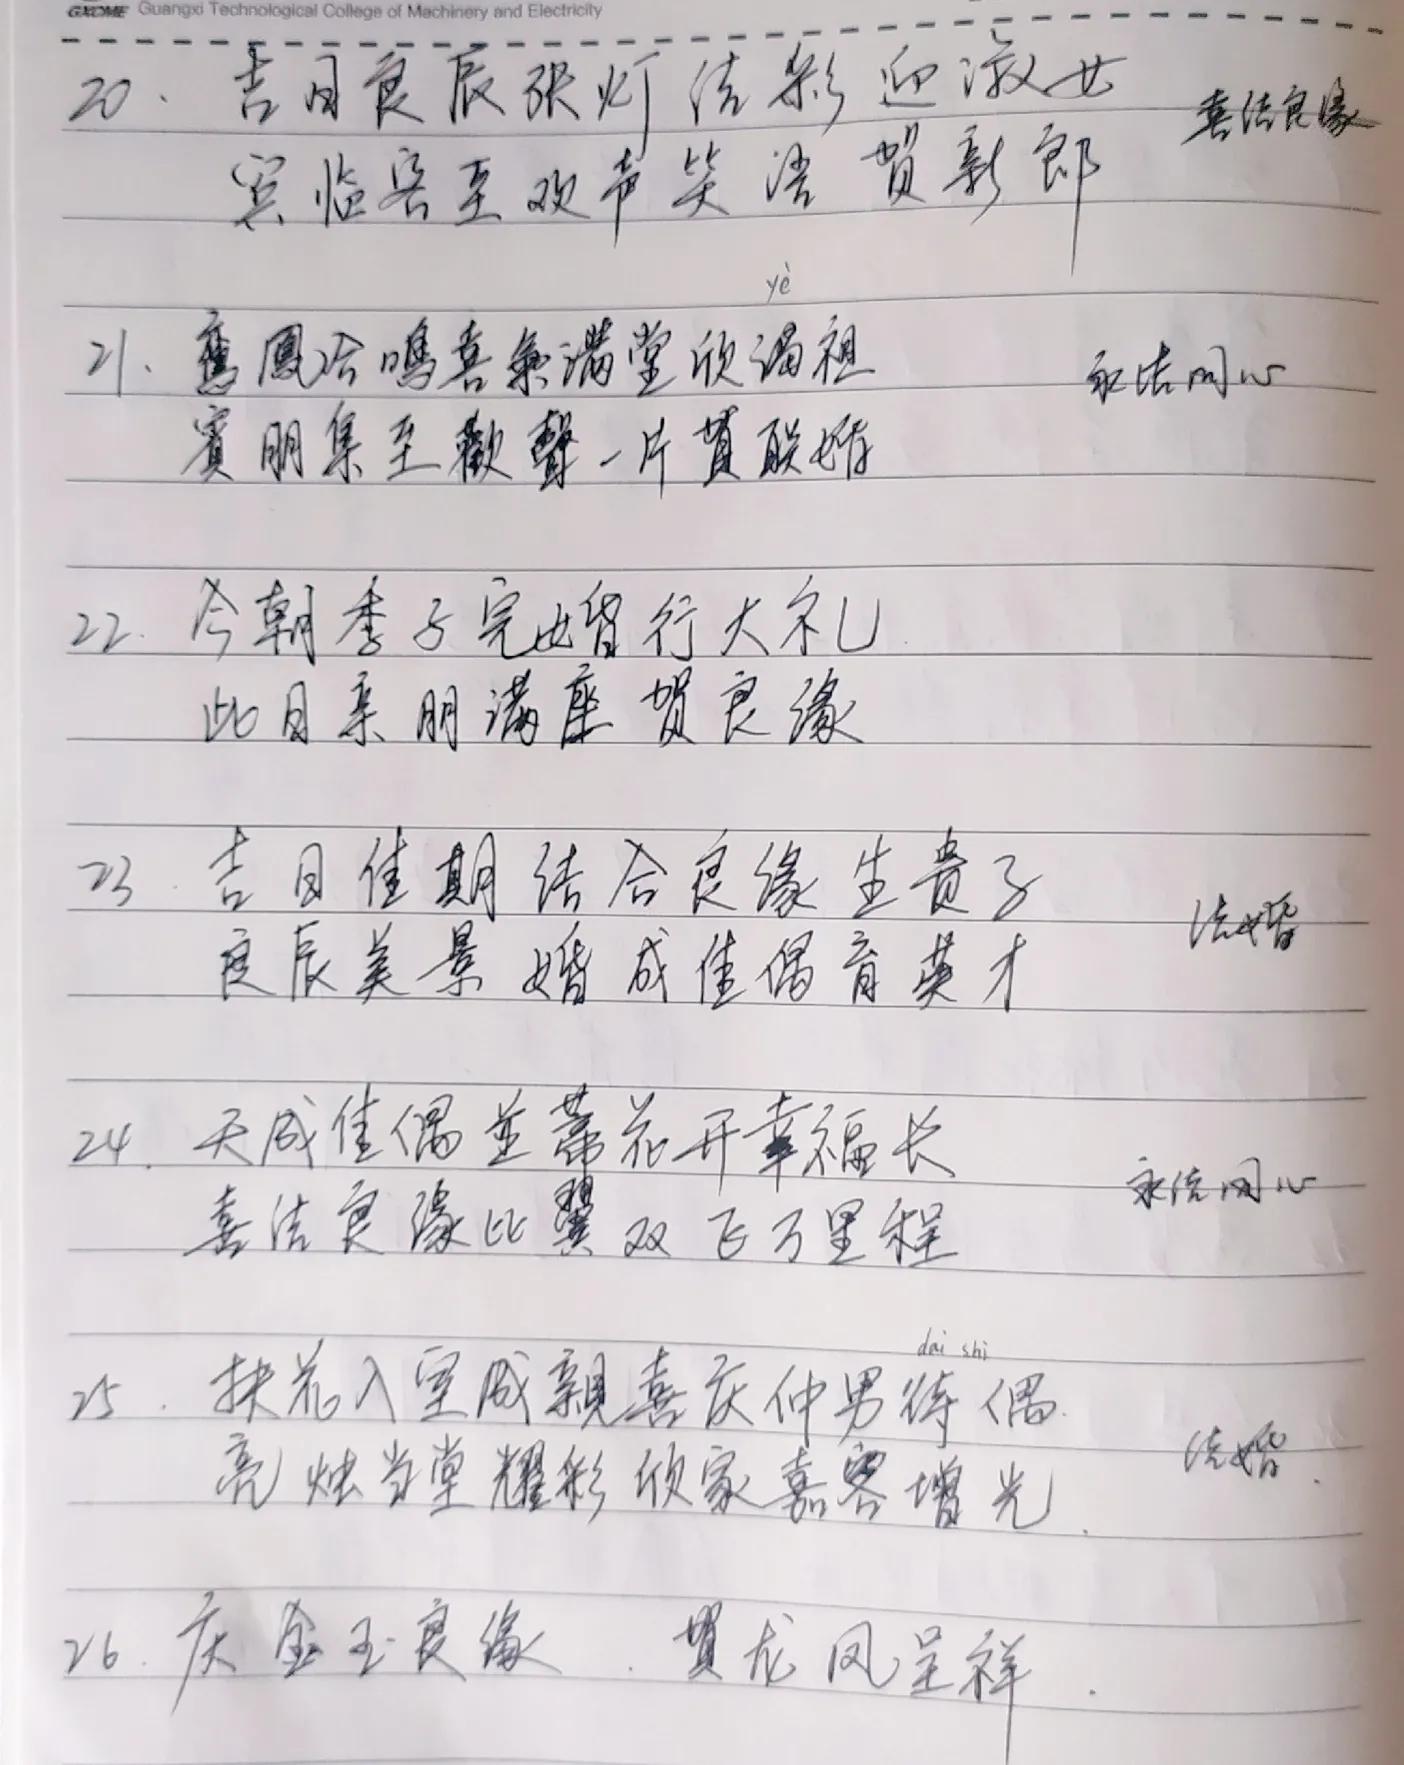 GXCME Guangxi Technological College of Machinery and Electricity
20. 吉日良辰张灯结彩迎淑女 喜结良缘
宾临客至欢声笑语贺新郎
yè
21. 鸾鳳和鳴喜氣满堂欣谒祖 永结同心
賓朋集至歡聲一片賀联婚
22. 今朝季子完婚行大礼
此日亲朋满座贺良缘
23. 吉日佳期结合良缘生贵子 结婚
良辰美景婚成佳偶育英才
24. 天成佳偶並蒂花开幸福长 永结同心
喜结良缘比翼双飞万里程
dai shi
25. 扶花入室成親喜庆仲男待偶. 结婚.
亮烛当堂耀彩欣家嘉客增光.
26. 庆金玉良缘. 賀龙凤呈祥.